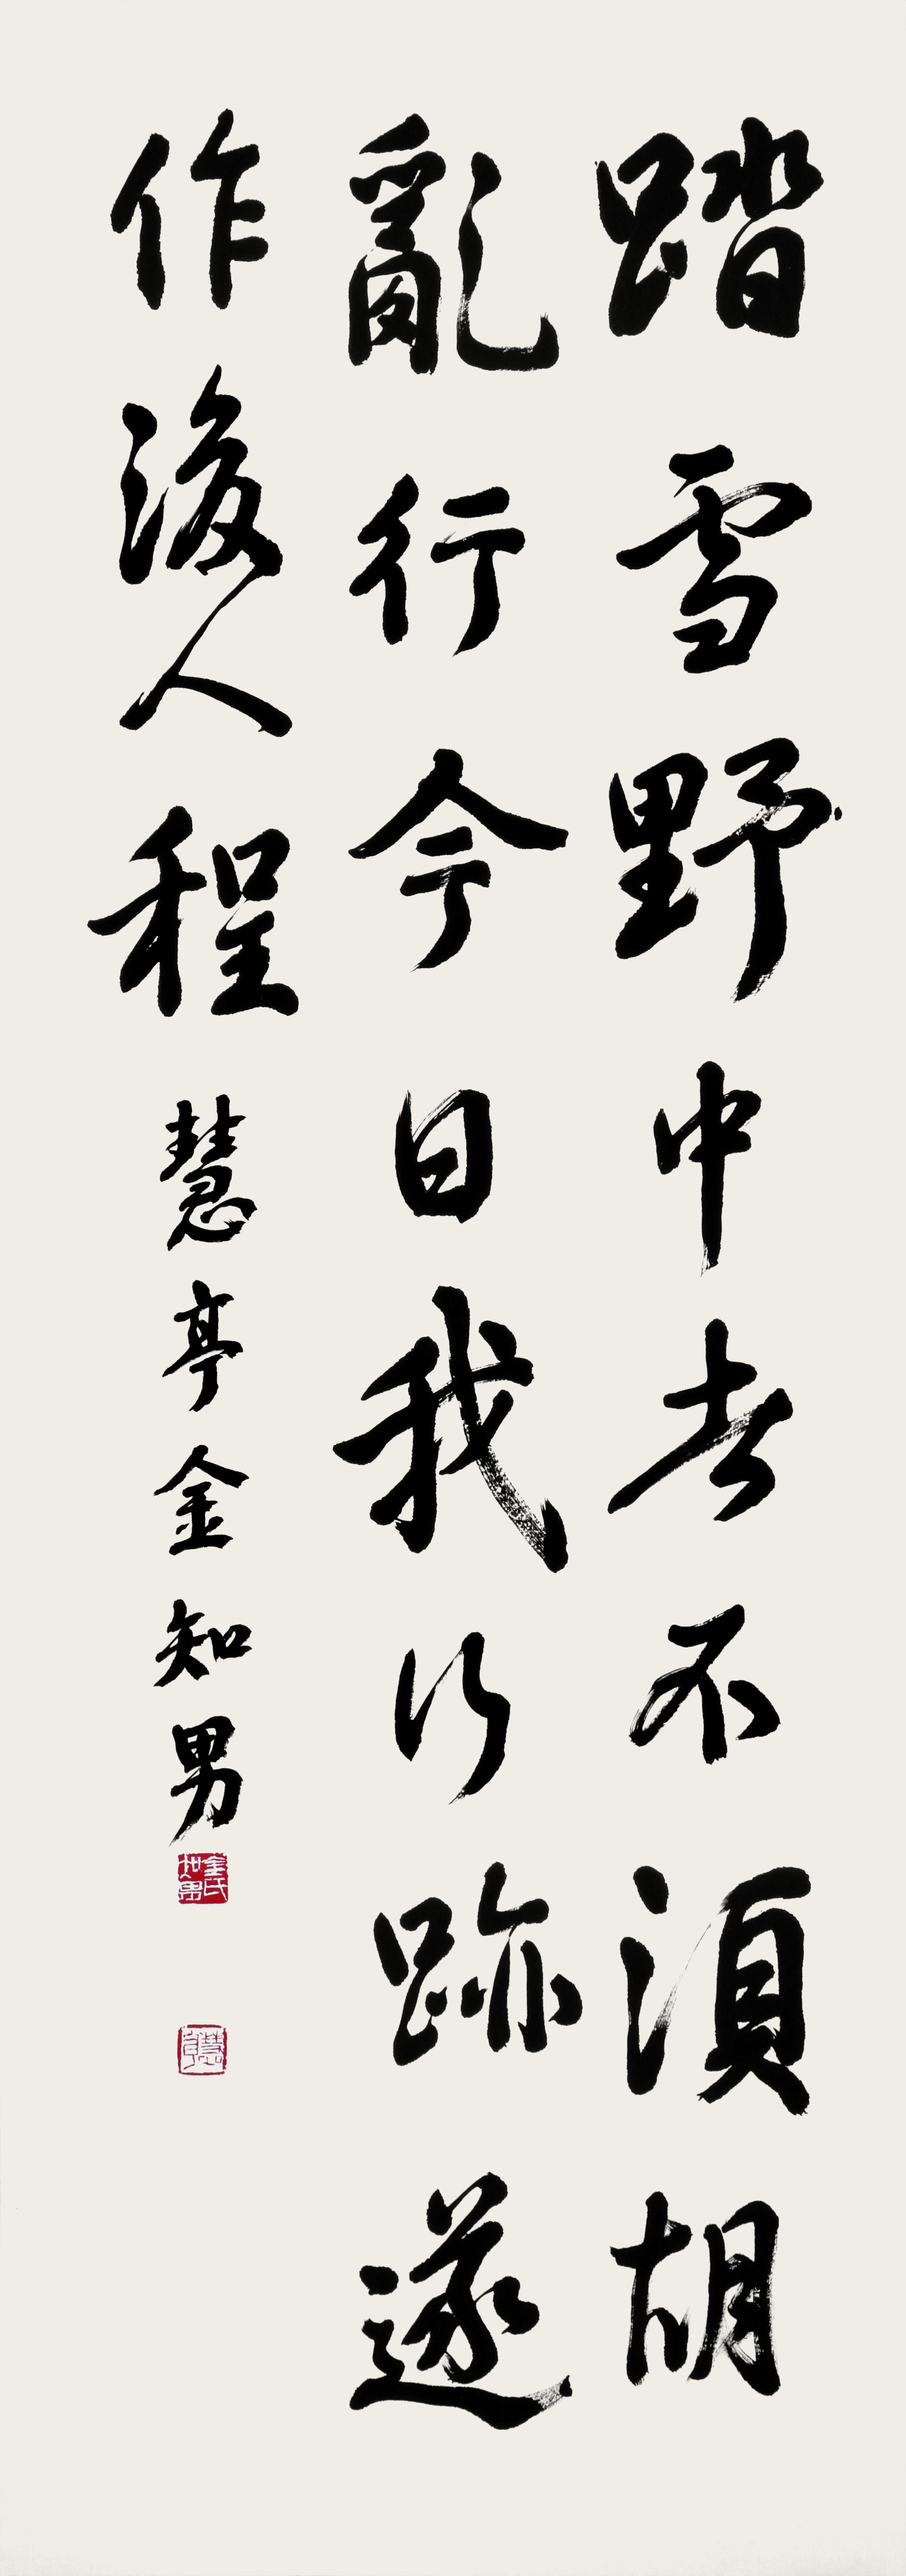 踏雪野中去不須胡
亂行今日我行跡遂
作後人程
慧亭金知男
金氏知男
慧亭